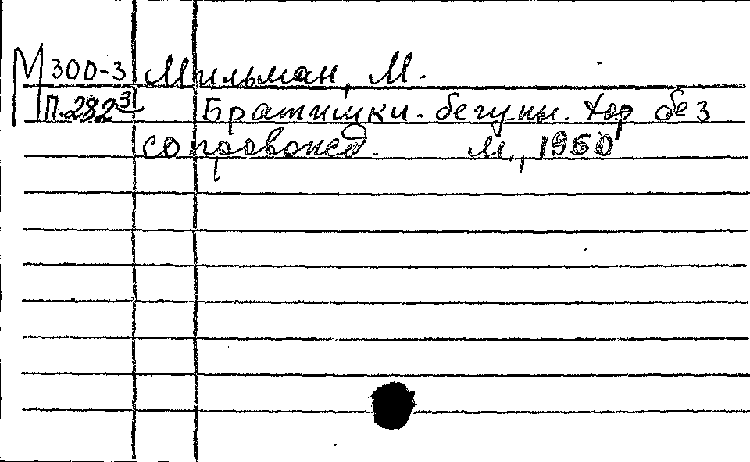 М 300-3 Мильман, М.
П.282³ Братишки-бегуны. Хор без
сопровожд. М., 1950